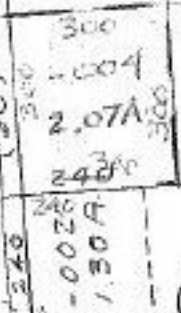 300
300
-004
2.07A
300
300
240
240
240
-002
1.30A